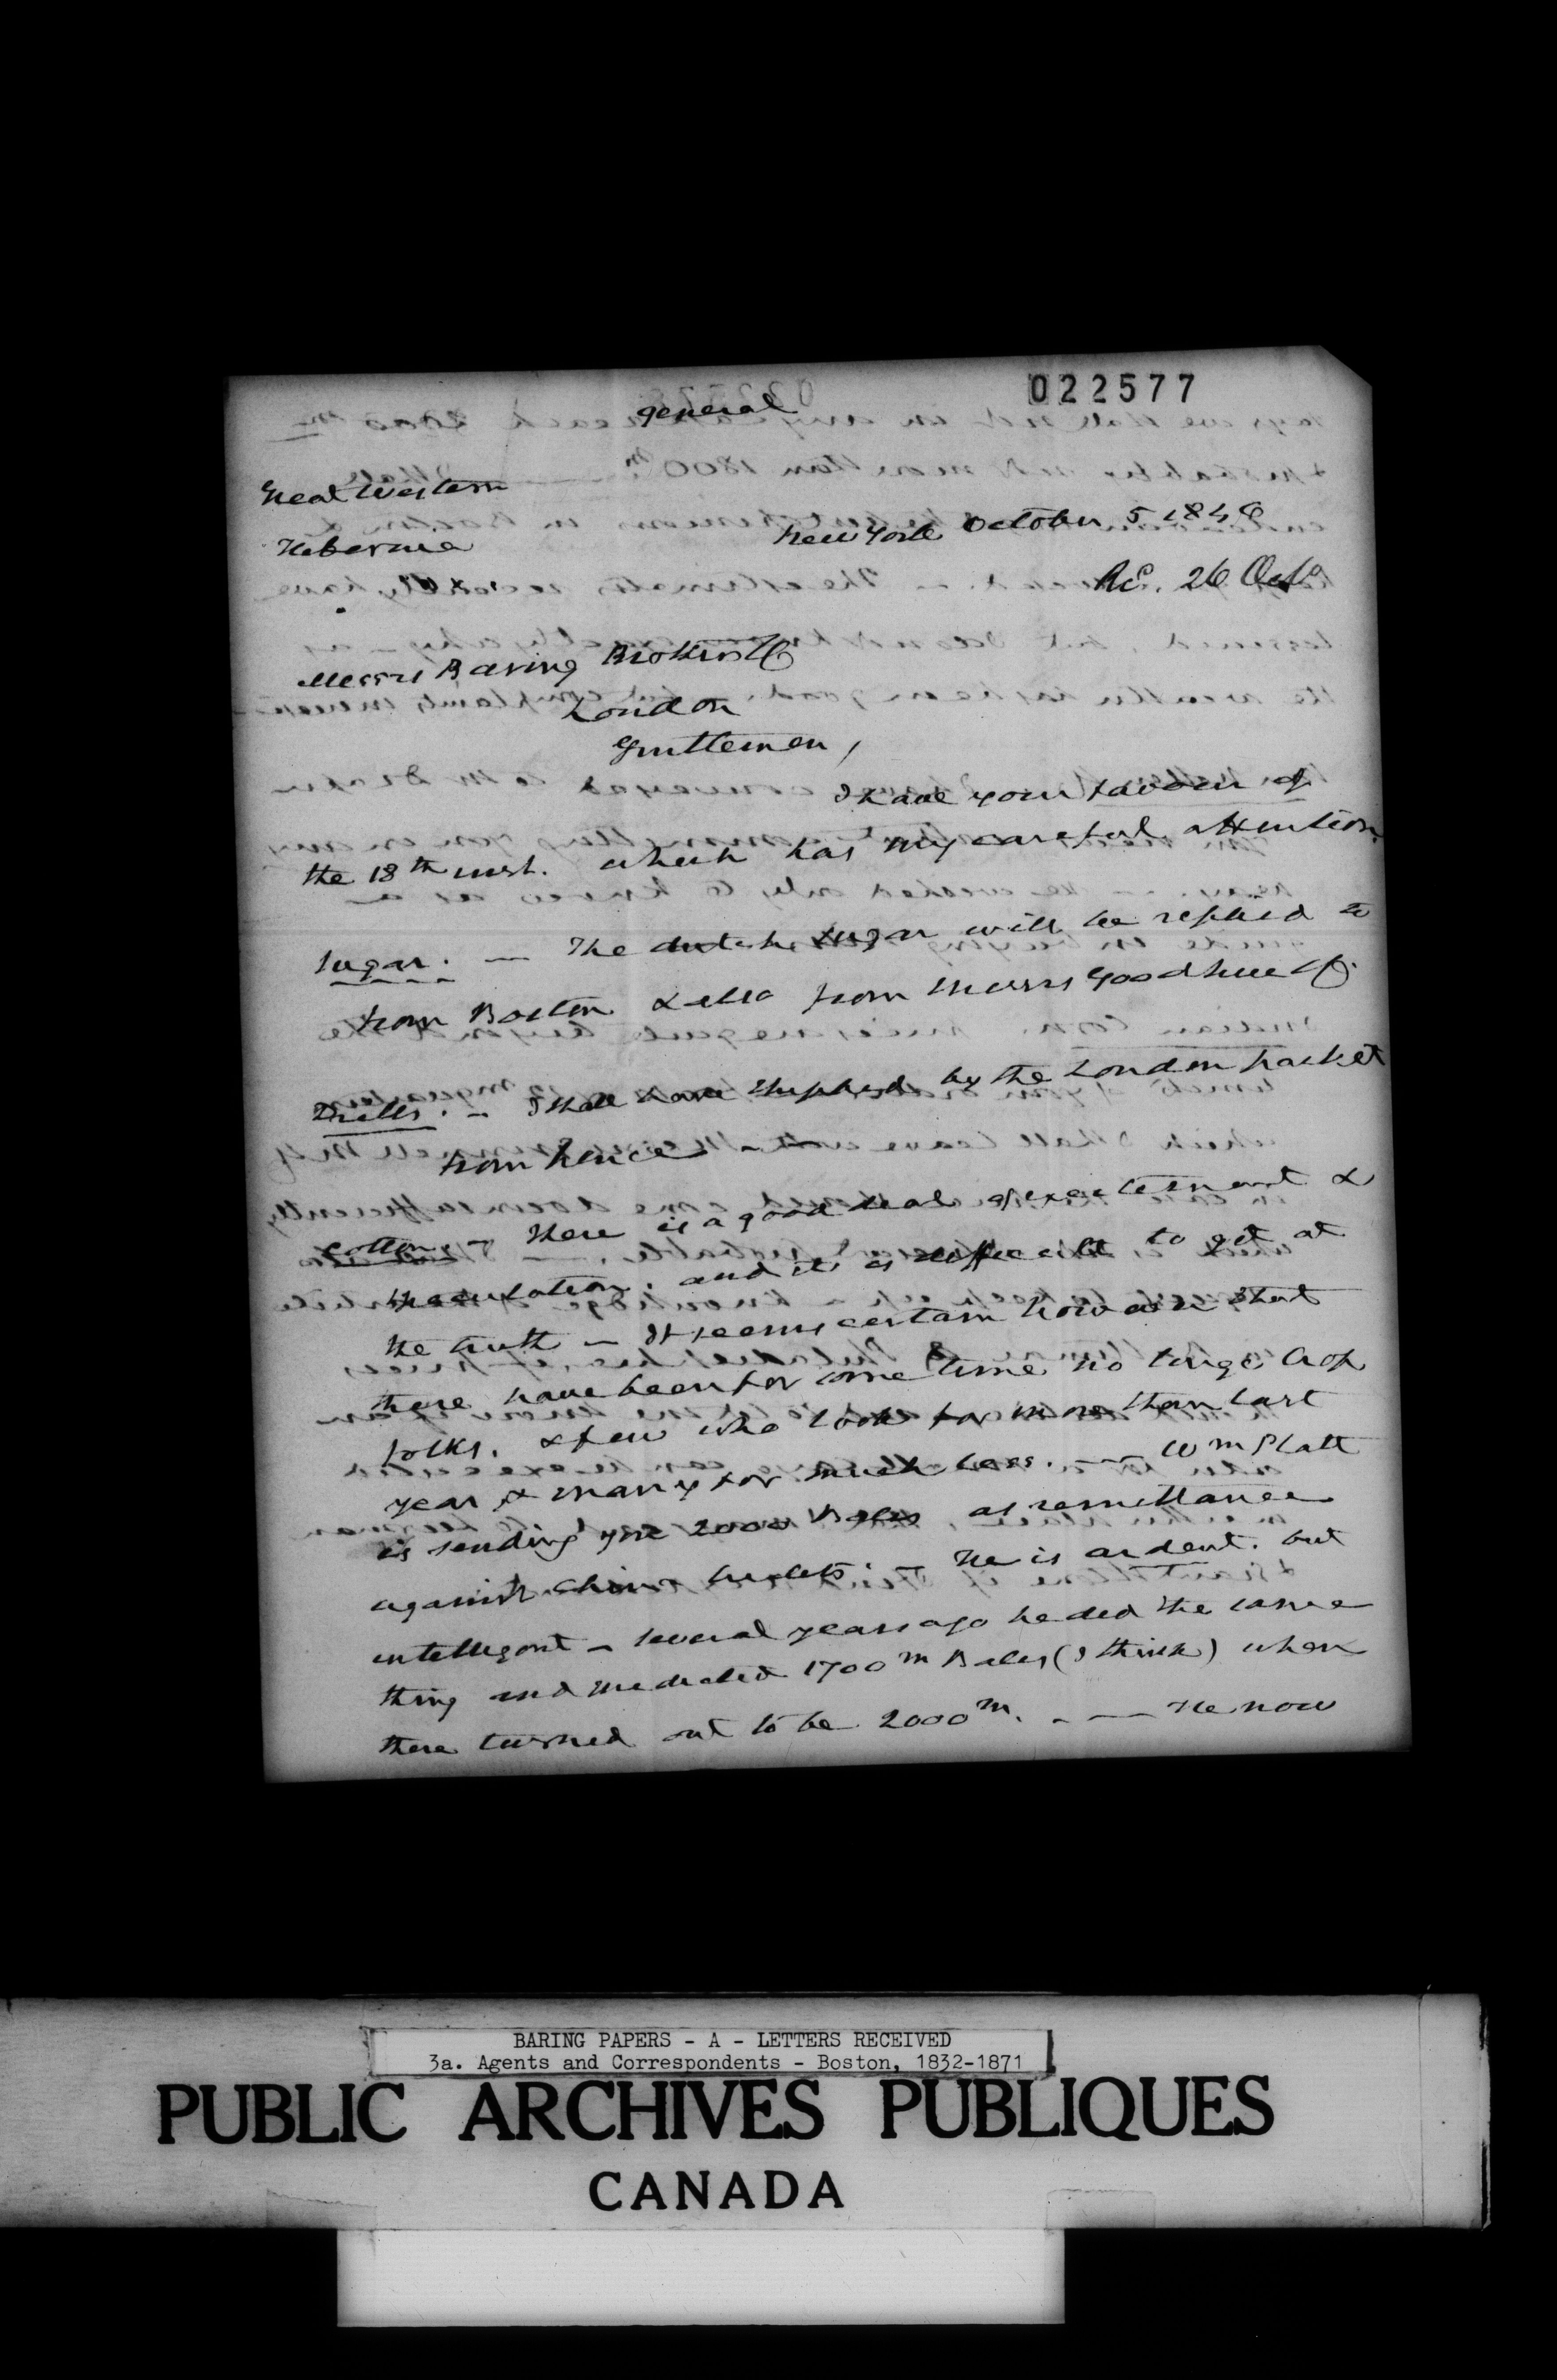 022577
general
Great Western
Hibernia
New York October 5 1846
Rc. 26 Octo
Messrs Baring Brothers & Co
London
Gentlemen,
I have your favour of
the 18th inst. which has my careful attention.
Sugar. — The dutch sugar will be replied to
from Boston & also from Messrs Goodhue & Co.
Drills. — I shall have shipped by the London packet
from hence
Cotton — There is a good deal of excitement &
speculation. and it is difficult to get at
the truth — It seems certain however that
there have been for some time no large crop
folks. & few who look for more than last
year & many for much less. — Wm Platt
is sending you 2000 Bales as remittance
against China credits. — He is ardent. but
intelligent — several years ago he did the same
thing and predicted 1700m Bales (I think) when
there turned out to be 2000m. — — He now
BARING PAPERS - A - LETTERS RECEIVED
3a. Agents and Correspondents - Boston, 1832-1871
PUBLIC ARCHIVES PUBLIQUES
CANADA